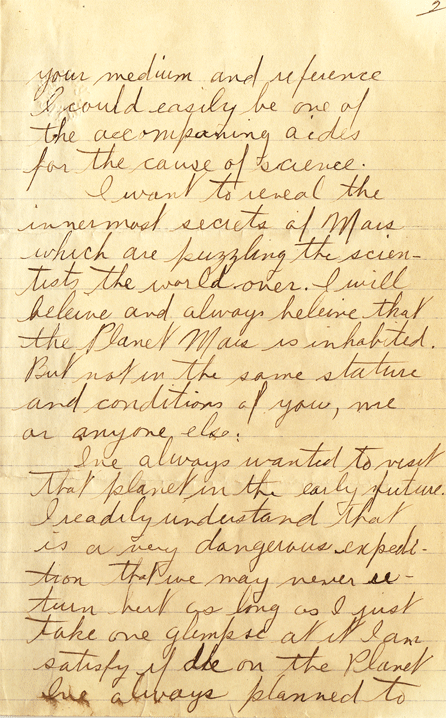 2
your medium and reference
I could easily be one of
the accompaining aides
for the cause of science.
I want to reveal the
innermost secrets of Mars
which are puzzling the scien-
tists the world over. I will
beleive and always beleive that
the Planet Mars is inhabited.
But not in the same stature
and conditions of you, me
or anyone else.
I've always wanted to visit
that planet in the early future.
I readily understand that
is a very dangerous expedi-
tion that we may never re-
turn but as long as I just
take one glimpse at it I am
satisfy if die on the Planet
I've always planned to